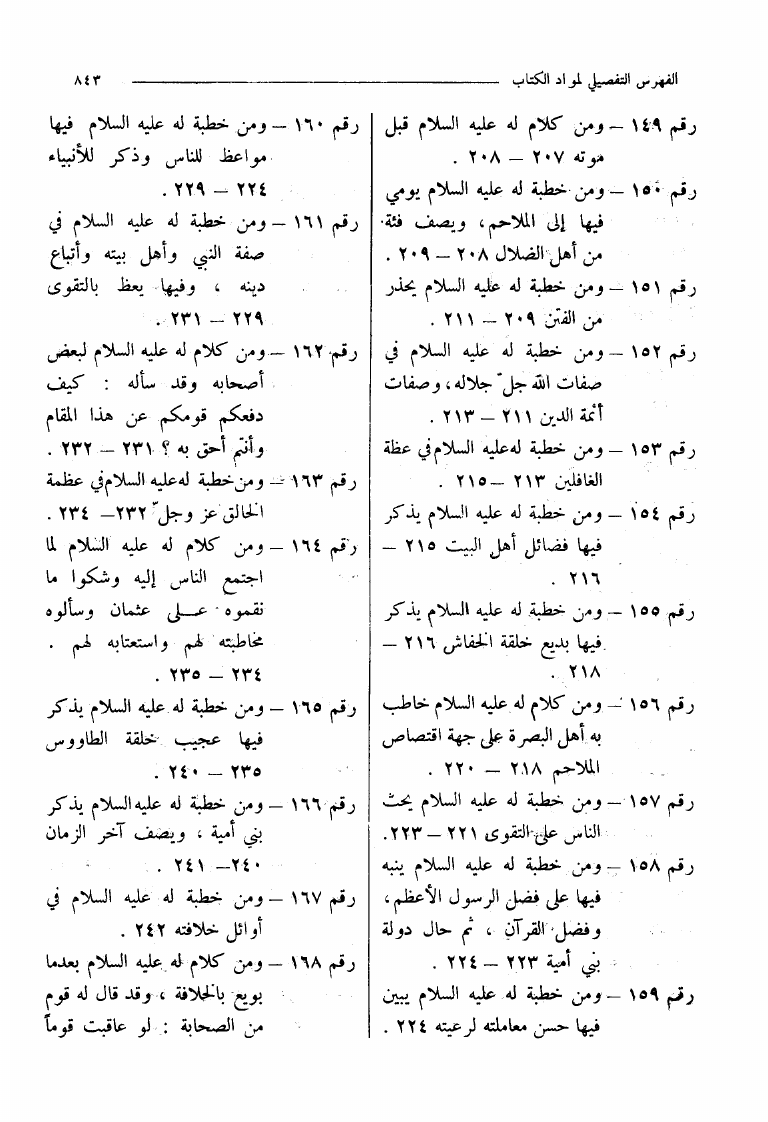 الفهرس التفصيلي لمواد الكتاب ٨٤٣
رقم ١٤٩ – ومن كلام له عليه السلام قبل
موته ٢٠٧ – ٢٠٨ .
رقم ١٥٠ – ومن خطبة له عليه السلام يومي
فيها إلى الملاحم، ويصف فئة
من أهل الضلال ٢٠٨ – ٢٠٩ .
رقم ١٥١ – ومن خطبة له عليه السلام يحذر
من الفتن ٢٠٩ – ٢١١ .
رقم ١٥٢ – ومن خطبة له عليه السلام في
صفات الله جلّ جلاله، وصفات
أئمة الدين ٢١١ – ٢١٣ .
رقم ١٥٣ – ومن خطبة له عليه السلام في عظة
الغافلين ٢١٣ – ٢١٥ .
رقم ١٥٤ – ومن خطبة له عليه السلام يذكر
فيها فضائل أهل البيت ٢١٥ –
٢١٦ .
رقم ١٥٥ – ومن خطبة له عليه السلام يذكر
فيها بديع خلقة الخفاش ٢١٦ –
٢١٨ .
رقم ١٥٦ – ومن كلام له عليه السلام خاطب
به أهل البصرة على جهة اقتصاص
الملاحم ٢١٨ – ٢٢٠ .
رقم ١٥٧ – ومن خطبة له عليه السلام يحث
الناس على التقوى ٢٢١ – ٢٢٣.
رقم ١٥٨ – ومن خطبة له عليه السلام ينبه
فيها على فضل الرسول الأعظم،
وفضل القرآن ، ثم حال دولة
بني أمية ٢٢٣ – ٢٢٤ .
رقم ١٥٩ – ومن خطبة له عليه السلام يبين
فيها حسن معاملته لرعيته ٢٢٤ .
رقم ١٦٠ – ومن خطبة له عليه السلام فيها
مواعظ للناس وذكر للأنبياء
٢٢٤ – ٢٢٩ .
رقم ١٦١ – ومن خطبة له عليه السلام في
صفة النبي وأهل بيته وأتباع
دينه ، وفيها يعظ بالتقوى
٢٢٩ – ٢٣١ .
رقم ١٦٢ – ومن كلام له عليه السلام لبعض
أصحابه وقد سأله : كيف
دفعكم قومكم عن هذا المقام
وأنتم أحق به ؟ ٢٣١ – ٢٣٢ .
رقم ١٦٣ – ومن خطبة له عليه السلام في عظمة
الخالق عز وجلّ ٢٣٢ – ٢٣٤ .
رقم ١٦٤ – ومن كلام له عليه السلام لما
اجتمع الناس إليه وشكوا ما
نقموه علـى عثمان وسألوه
مخاطبته لهم واستعتابه لهم .
٢٣٤ – ٢٣٥ .
رقم ١٦٥ – ومن خطبة له عليه السلام يذكر
فيها عجيب خلقة الطاووس
٢٣٥ – ٢٤٠ .
رقم ١٦٦ – ومن خطبة له عليه السلام يذكر
بني أمية ، ويصف آخر الزمان
٢٤٠ – ٢٤١ .
رقم ١٦٧ – ومن خطبة له عليه السلام في
أوائل خلافته ٢٤٢ .
رقم ١٦٨ – ومن كلام له عليه السلام بعدما
بويع بالخلافة ، وقد قال له قوم
من الصحابة : لو عاقبت قوماً